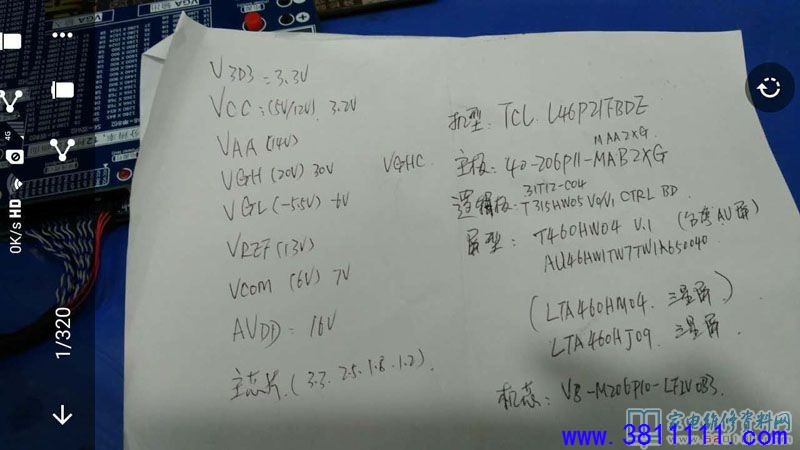 VGA输入
VGA输出
V3D3=3.3V
VCC:(5V/12V). 3.2V
VAA (14V)
VGH (20V) 30V
VGHC
VGL (-5.5V) -6V
VREF (13V)
VCOM (6V) 7V
AVDD= 16V
主芯片.(3.3. 2.5. 1.8. 1.2).
机型: TCL. L46P21FBDE
MAA2XG.
主板: 40-206P11-MAB2XG
31T12-C04
逻辑板: T315HW05 V0/V1 CTRL BD
屏型: T460HW04 V.1 (台湾AU屏)
AU46HW1TW7TW1A650040
(LTA460HM04. 三星屏)
LTA460HJ09. 三星屏
机芯: V8-M206P10-LF1V083.
0K/s HD 4G
1/320
家电维修资料网
www.3811111.com